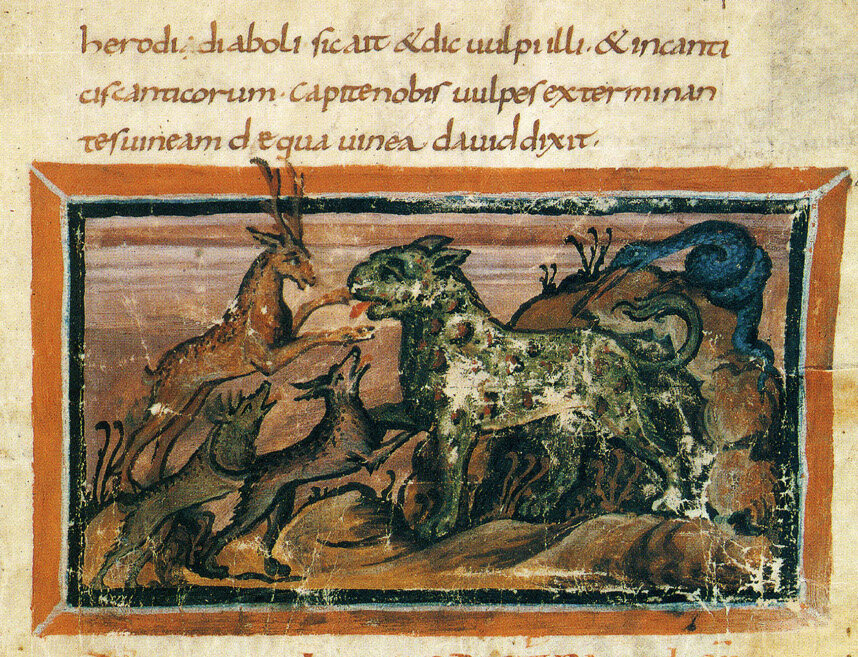 herodi diaboli sicait &dic uulpi illi· &incanti
ciscanticorum· capitenobis uulpes exterminan
tesuineam dequa uinea dauid dixit·